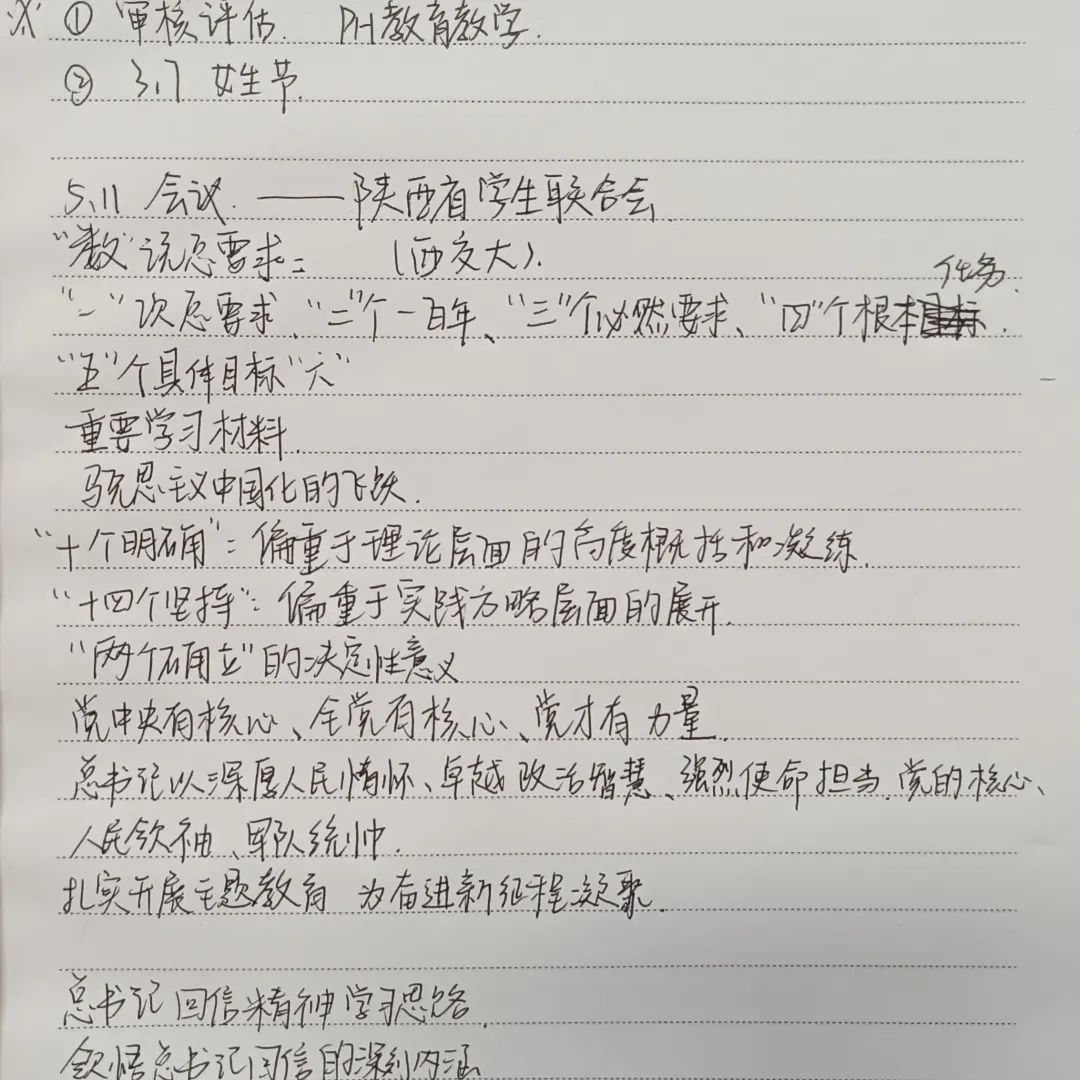 ※ ① 审核评估. PH教育教学.
② 3.7 女生节.
5.11 会议. ——陕西省学生联合会.
"数"说总要求: (西交大).
任务.
"一"次总要求、"二"个一百年、"三"个必然要求、"四"个根本.
"五"个具体目标"六"
重要学习材料.
马克思主义中国化的飞跃.
"十个明确": 偏重于理论层面的高度概括和凝练.
"十四个坚持": 偏重于实践方略层面的展开.
"两个确立"的决定性意义
党中央有核心、全党有核心、党才有力量.
总书记以深厚人民情怀、卓越政治智慧、强烈使命担当.党的核心、
人民领袖、军队统帅.
扎实开展主题教育 为奋进新征程凝聚.
总书记回信精神学习思路.
领悟总书记回信的深刻内涵